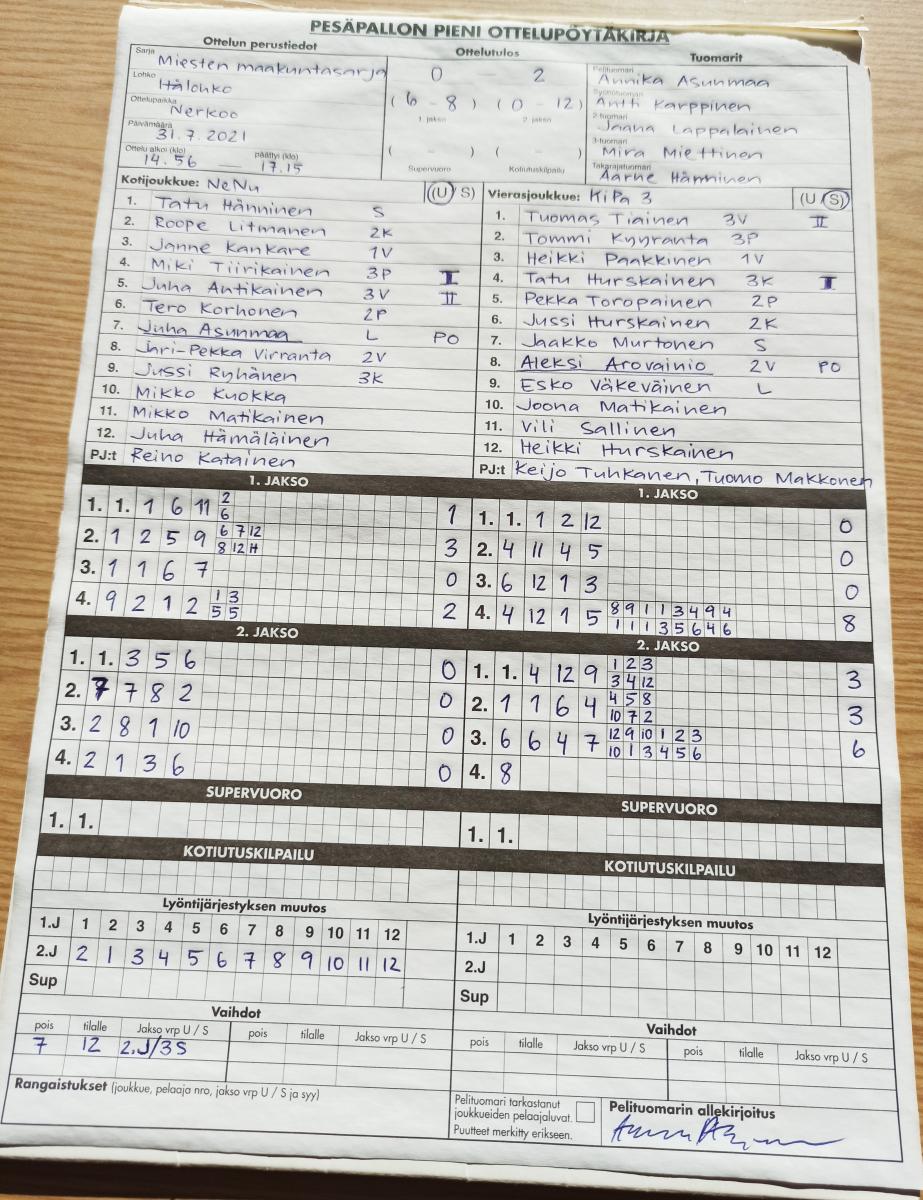 PESÄPALLON PIENI OTTELUPÖYTÄKIRJA
Ottelun perustiedot
Sarja Miesten maakuntasarja
Lohko Itälohko
Ottelupaikka Nerkoo
Päivämäärä 31.7.2021
Ottelu alkoi (klo) päättyi (klo)
14.56 — 17.15
Ottelutulos
0 — 2
( 6 - 8 ) ( 0 - 12 )
1. jakso 2. jakso
( - ) ( - )
Supervuoro Kotiutuskilpailu
Tuomarit
Pelituomari Annika Asunmaa
Syöttötuomari Antti Karppinen
2-tuomari Jaana Lappalainen
3-tuomari Mira Miettinen
Takarajatuomari Aarne Hänninen
Kotijoukkue: NeNu (U / S)
1. Tatu Hänninen S
2. Roope Litmanen 2K
3. Janne Kankare 1V
4. Miki Tiirikainen 3P I
5. Juha Antikainen 3V II
6. Tero Korhonen 2P
7. Juha Asunmaa L PO
8. Jari-Pekka Virranta 2V
9. Jussi Ryhänen 3K
10. Mikko Kuokka
11. Mikko Matikainen
12. Juha Hämäläinen
PJ:t Reino Katainen
Vierasjoukkue: KiPa 3 (U / S)
1. Tuomas Tiainen 3V II
2. Tommi Kyyranta 3P
3. Heikki Paakkinen 1V
4. Tatu Hurskainen 3K I
5. Pekka Toropainen 2P
6. Jussi Hurskainen 2K
7. Jaakko Murtonen S
8. Aleksi Arovainio 2V PO
9. Esko Väkeväinen L
10. Joona Matikainen
11. Vili Sallinen
12. Heikki Hurskainen
PJ:t Keijo Tuhkanen, Tuomo Makkonen
1. JAKSO
1. 1. 1 6 11 2 1
6
2. 1 2 5 9 6 7 12 3
8 12 11
3. 1 1 6 7 0
4. 9 2 1 2 1 3 2
5 5
2. JAKSO
1. 1. 3 5 6 0
2. 7 7 8 2 0
3. 2 8 1 10 0
4. 2 1 3 6 0
SUPERVUORO
1. 1.
KOTIUTUSKILPAILU
1. JAKSO
1. 1. 1 2 12 0
2. 4 11 4 5 0
3. 6 12 1 3 0
4. 4 12 1 5 8 9 1 1 3 4 9 4 8
1 1 1 3 5 6 4 6
2. JAKSO
1. 1. 4 12 9 1 2 3 3
3 4 12
2. 1 1 6 4 4 5 8 3
10 7 2
3. 6 6 4 7 12 9 10 1 2 3 6
10 1 3 4 5 6
4. 8
SUPERVUORO
1. 1.
KOTIUTUSKILPAILU
Lyöntijärjestyksen muutos
1.J 1 2 3 4 5 6 7 8 9 10 11 12
2.J 2 1 3 4 5 6 7 8 9 10 11 12
Sup
Vaihdot
pois tilalle Jakso vrp U / S pois tilalle Jakso vrp U / S
7 12 2.J/3S
Rangaistukset (joukkue, pelaaja nro, jakso vrp U / S ja syy)
Lyöntijärjestyksen muutos
1.J 1 2 3 4 5 6 7 8 9 10 11 12
2.J
Sup
Vaihdot
pois tilalle Jakso vrp U / S pois tilalle Jakso vrp U / S
Pelituomari tarkastanut
joukkueiden pelaajaluvat.
Puutteet merkitty erikseen.
Pelituomarin allekirjoitus